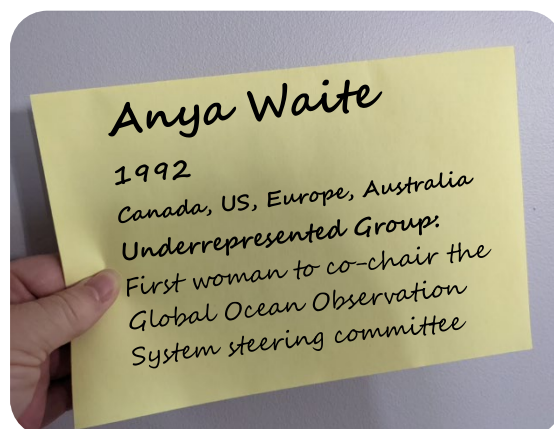 Anya Waite
1992
Canada, US, Europe, Australia
Underrepresented Group:
First woman to co-chair the
Global Ocean Observation
System steering committee